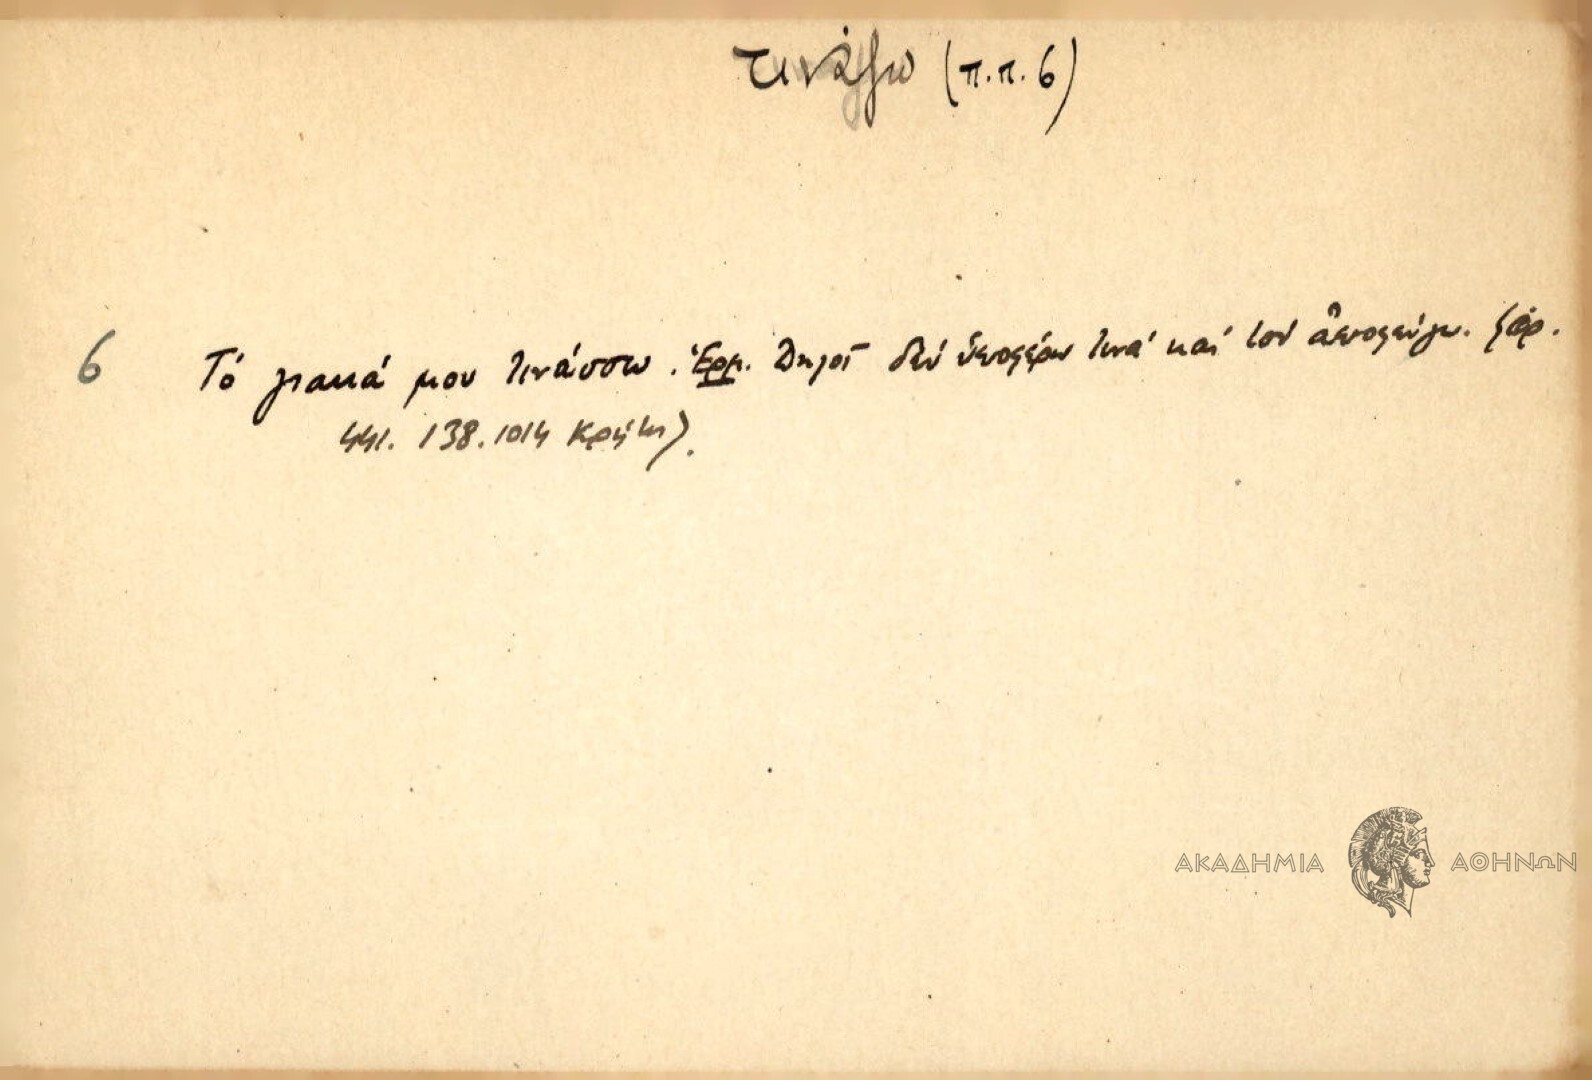 τινάζω (π.π. 6)
6 Τό γιακά μου τινάσσω. Ἑρμ. Δηλοῖ δέν ὑποφέρω τινά καί τόν ἀποφεύγω. (Φρ.
441. 138. 1014 Κρήτη).
ΑΚΑΔΗΜΙΑ ΑΘΗΝΩΝ